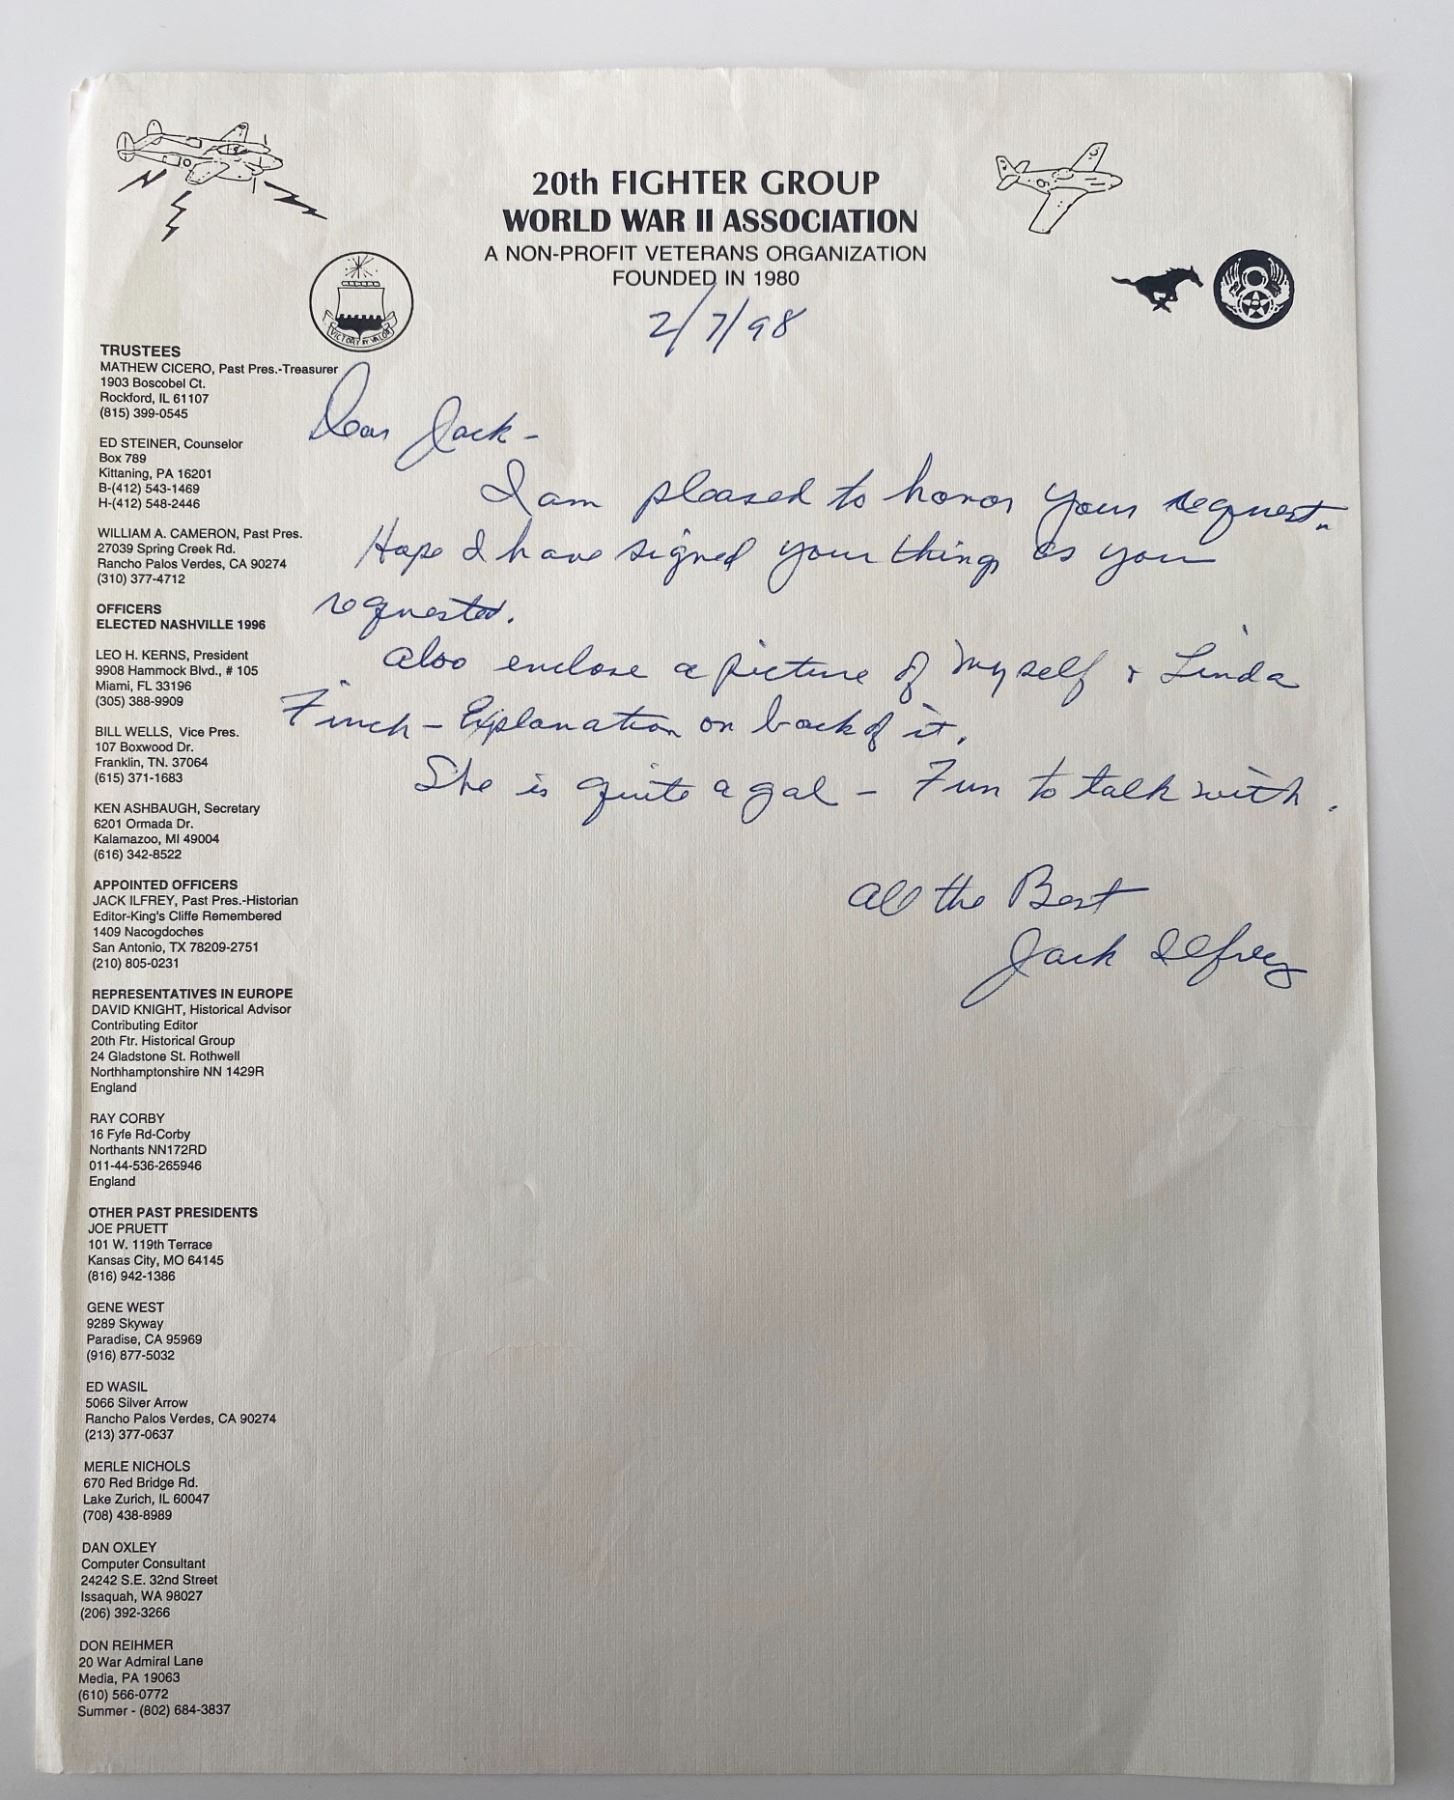 20th FIGHTER GROUP
WORLD WAR II ASSOCIATION
A NON-PROFIT VETERANS ORGANIZATION
FOUNDED IN 1980
2/7/98
VICTORY BY VALOR
8
TRUSTEES
MATHEW CICERO, Past Pres.-Treasurer
1903 Boscobel Ct.
Rockford, IL 61107
(815) 399-0545
ED STEINER, Counselor
Box 789
Kittaning, PA 16201
B-(412) 543-1469
H-(412) 548-2446
WILLIAM A. CAMERON, Past Pres.
27039 Spring Creek Rd.
Rancho Palos Verdes, CA 90274
(310) 377-4712
OFFICERS
ELECTED NASHVILLE 1996
LEO H. KERNS, President
9908 Hammock Blvd., # 105
Miami, FL 33196
(305) 388-9909
BILL WELLS, Vice Pres.
107 Boxwood Dr.
Franklin, TN. 37064
(615) 371-1683
KEN ASHBAUGH, Secretary
6201 Ormada Dr.
Kalamazoo, MI 49004
(616) 342-8522
APPOINTED OFFICERS
JACK ILFREY, Past Pres.-Historian
Editor-King's Cliffe Remembered
1409 Nacogdoches
San Antonio, TX 78209-2751
(210) 805-0231
REPRESENTATIVES IN EUROPE
DAVID KNIGHT, Historical Advisor
Contributing Editor
20th Ftr. Historical Group
24 Gladstone St. Rothwell
Northhamptonshire NN 1429R
England
RAY CORBY
16 Fyfe Rd-Corby
Northants NN172RD
011-44-536-265946
England
OTHER PAST PRESIDENTS
JOE PRUETT
101 W. 119th Terrace
Kansas City, MO 64145
(816) 942-1386
GENE WEST
9289 Skyway
Paradise, CA 95969
(916) 877-5032
ED WASIL
5066 Silver Arrow
Rancho Palos Verdes, CA 90274
(213) 377-0637
MERLE NICHOLS
670 Red Bridge Rd.
Lake Zurich, IL 60047
(708) 438-8989
DAN OXLEY
Computer Consultant
24242 S.E. 32nd Street
Issaquah, WA 98027
(206) 392-3266
DON REIHMER
20 War Admiral Lane
Media, PA 19063
(610) 566-0772
Summer - (802) 684-3837
Dear Jack-
I am pleased to honor your request.
Hope I have signed your things as you
requested.
Also enclose a picture of myself & Linda
Finch - Explanation on back of it.
She is quite a gal - Fun to talk with.
All the Best
Jack Ilfrey